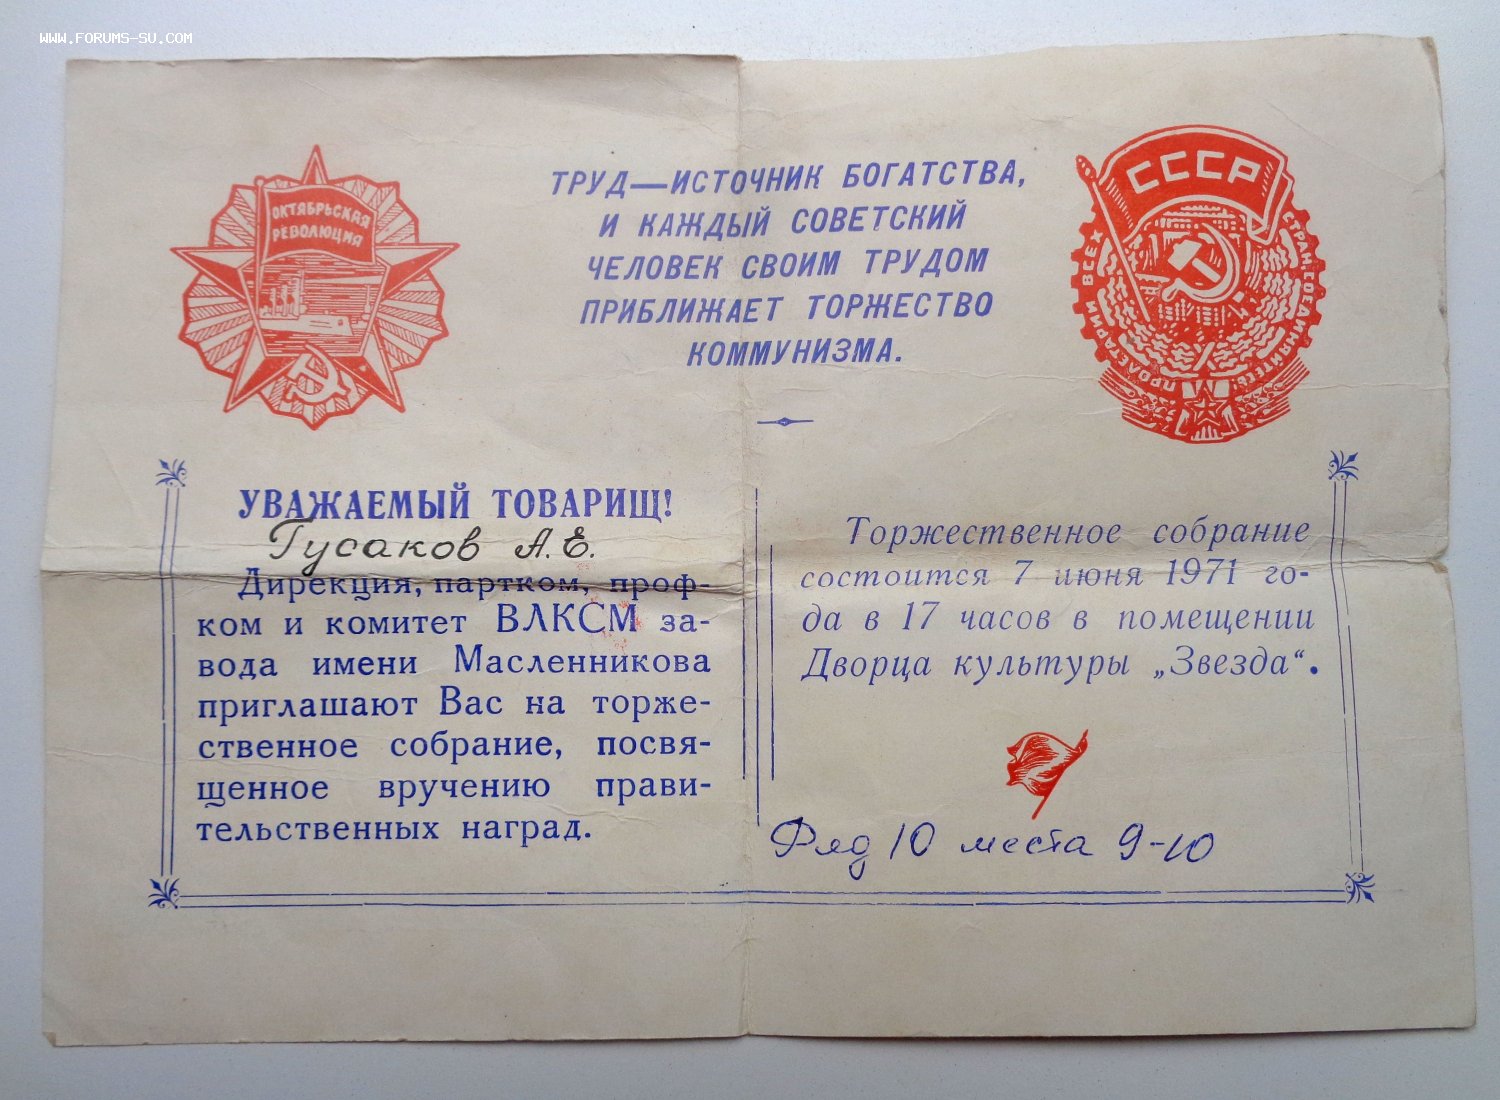 WWW.FORUMS-SU.COM
ОКТЯБРЬСКАЯ
РЕВОЛЮЦИЯ
ТРУД—ИСТОЧНИК БОГАТСТВА,
И КАЖДЫЙ СОВЕТСКИЙ
ЧЕЛОВЕК СВОИМ ТРУДОМ
ПРИБЛИЖАЕТ ТОРЖЕСТВО
КОММУНИЗМА.
СССР
ПРОЛЕТАРИИ ВСЕХ СТРАН, СОЕДИНЯЙТЕСЬ!
УВАЖАЕМЫЙ ТОВАРИЩ!
Гусаков А.Е.
Дирекция, партком, проф-
ком и комитет ВЛКСМ за-
вода имени Масленникова
приглашают Вас на торже-
ственное собрание, посвя-
щенное вручению прави-
тельственных наград.
Торжественное собрание
состоится 7 июня 1971 го-
да в 17 часов в помещении
Дворца культуры „Звезда“.
Ряд 10 места 9-10